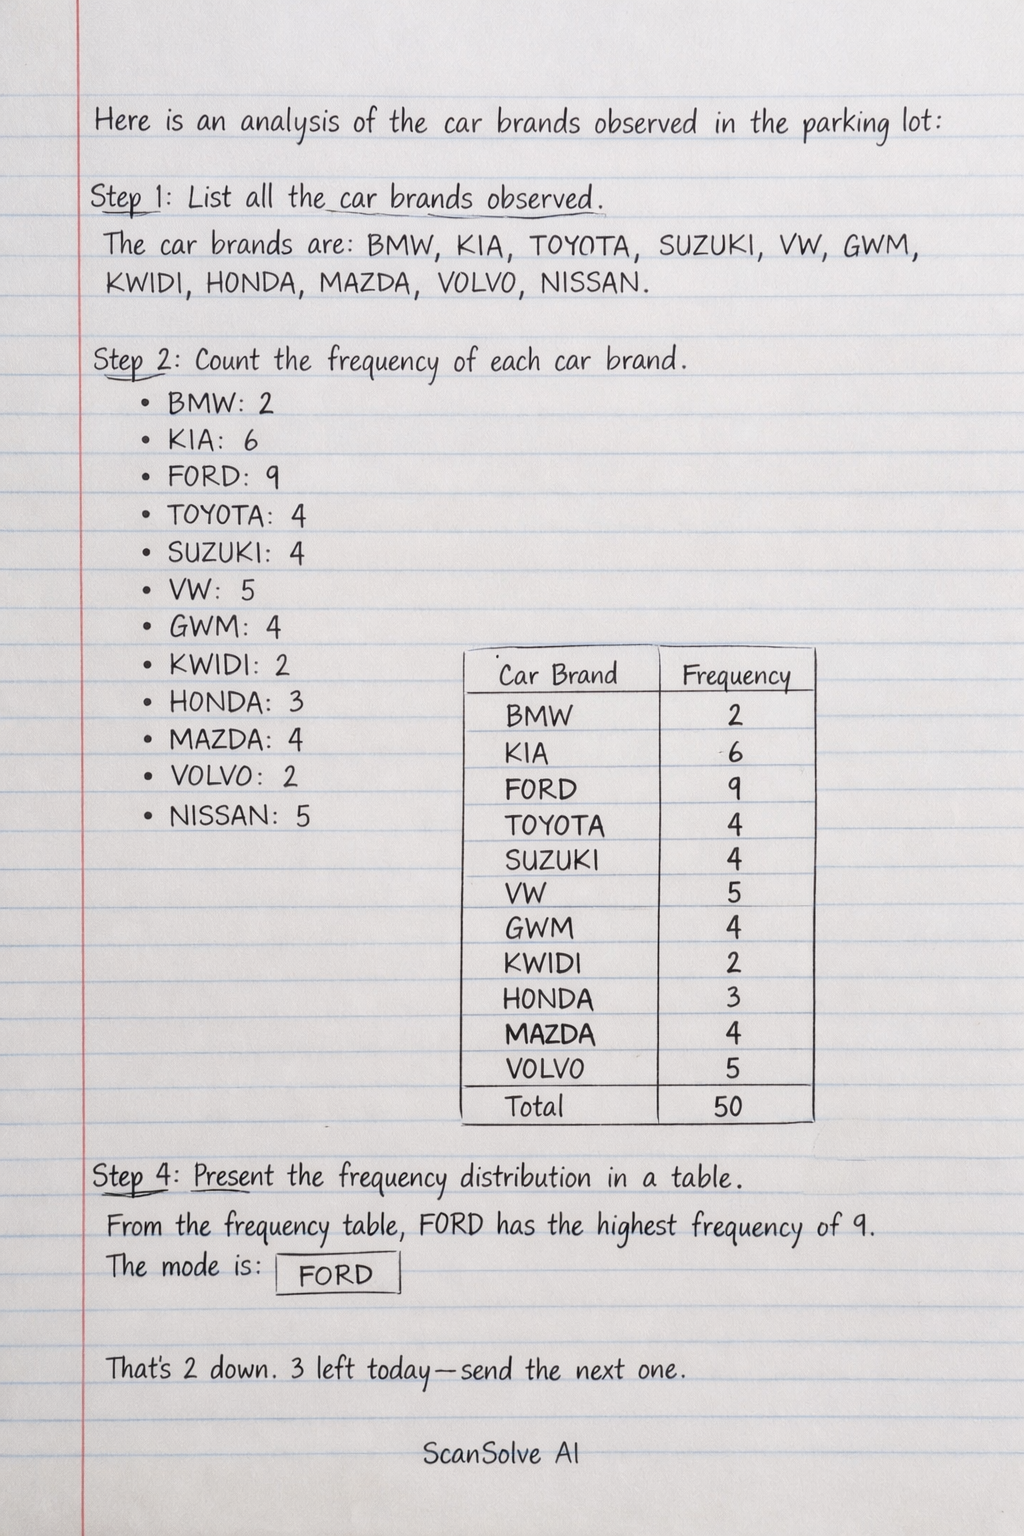 Here is an analysis of the car brands observed in the parking lot:
Step 1: List all the car brands observed.
The car brands are: BMW, KIA, TOYOTA, SUZUKI, VW, GWM,
KWIDI, HONDA, MAZDA, VOLVO, NISSAN.
Step 2: Count the frequency of each car brand.
• BMW: 2
• KIA: 6
• FORD: 9
• TOYOTA: 4
• SUZUKI: 4
• VW: 5
• GWM: 4
• KWIDI: 2
• HONDA: 3
• MAZDA: 4
• VOLVO: 2
• NISSAN: 5
Car Brand Frequency
BMW 2
KIA 6
FORD 9
TOYOTA 4
SUZUKI 4
VW 5
GWM 4
KWIDI 2
HONDA 3
MAZDA 4
VOLVO 5
Total 50
Step 4: Present the frequency distribution in a table.
From the frequency table, FORD has the highest frequency of 9.
The mode is: FORD
That's 2 down. 3 left today—send the next one.
ScanSolve AI